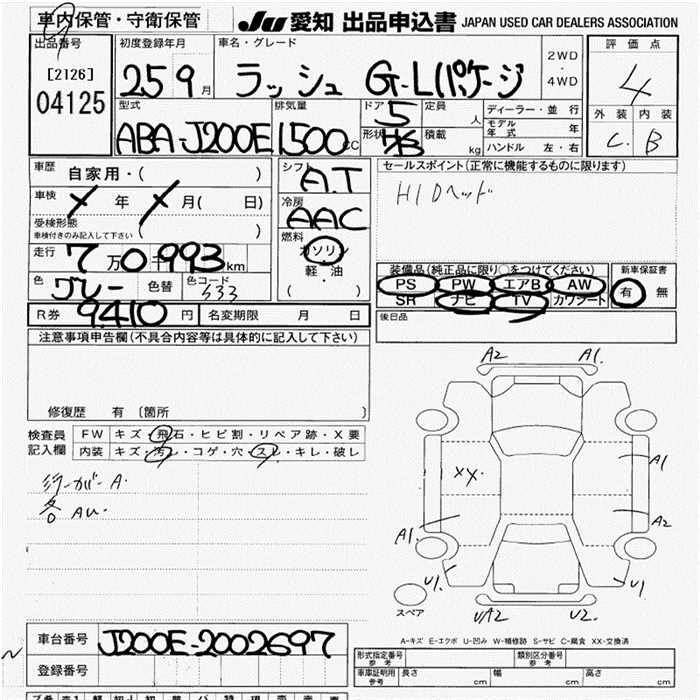 車内保管・守衛保管
JU 愛知 出品申込書 JAPAN USED CAR DEALERS ASSOCIATION
出品番号
[2126]
04125
初度登録年月
25 9月
車名・グレード
ラッシュ G-Lパケージ
2WD
・
4WD
評価点
4
外装 内装
C. B
型式
ABA-J200E
排気量
1500 CC
ドア
5
形状
定員
人
積載
kg
ディーラー・並行
モデル年式 年
ハンドル 左・右
車歴 自家用・( )
車検 年 月( 日)
受検形態
車検付きのみ記入して下さい ( )
走行 7万0千993km
色 グレー 色替 色コード S33
R券 9.410 円 名変期限 月 日
シフト
A.T
冷房
AAC
燃料
ガソリン
軽・油
( ・ )
セールスポイント(正常に機能するものに限ります)
HIDヘッド
装備品(純正品に限り○をつけてください)
PS PW エアB AW
SR ナビ TV カワシート
新車保証書
有 無
後日品
注意事項申告欄(不具合内容等は具体的に記入して下さい)
修復歴 有 〔箇所 〕
検査員記入欄
FW キズ・飛石・ヒビ割・リペア跡・X要
内装 キズ・汚レ・コゲ・穴・スレ・キレ・破レ
A.
各 AU.
A2 A1.
A1
XX.
A2
A1.
U1 U1
UA2 U2.
スペア
A-キズ E-エクボ U-凹み W-補修跡 S-サビ C-腐食 XX-交換済
車台番号 J200E-2002697
登録番号
形式指定番号 参考
類別区分番号 参考
車庫証明用 参考 長さ cm 幅 cm 高さ cm